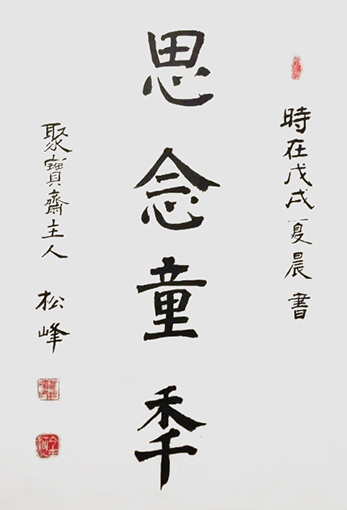 時在戊戌夏晨書
思念童秊
聚寶齋主人 松峰